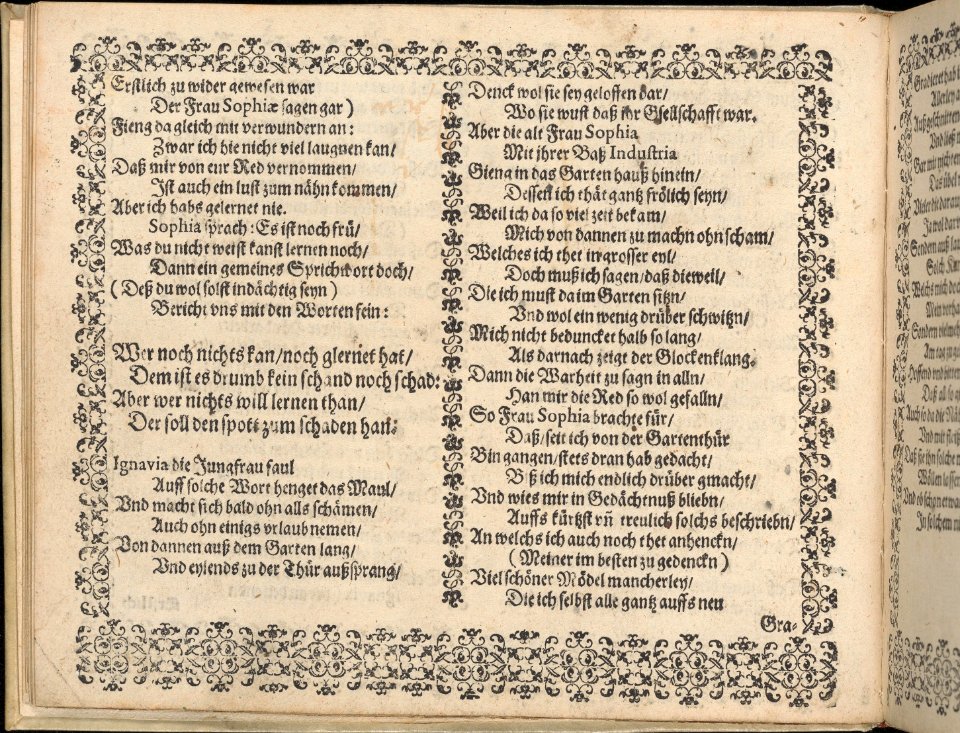 Erstlich zu wider gewesen war
Der Frau Sophiæ sagen gar)
Fieng da gleich mit verwundern an:
Zwar ich hie nicht viel laugnen kan/
Daß mir von eur Red vernommen/
Ist auch ein lust zum nähn kommen/
Aber ich habs gelernet nie.
Sophia sprach: Es ist noch frü/
Was du nicht weist kanst lernen noch/
Dann ein gemeines Sprichwort doch/
(Deß du wol solst indächtig seyn)
Bericht vns mit den Worten fein:
Wer noch nichts kan/noch glernet hat/
Dem ist es drumb kein schand noch schad:
Aber wer nichts will lernen than/
Der soll den spott zum schaden han:
Ignavia die Jungfrau faul
Auff solche Wort henget das Maul/
Vnd macht sich bald ohn alls schämen/
Auch ohn einigs vrlaub nemen/
Von dannen auß dem Garten lang/
Vnd eylends zu der Thür außsprang/
Denck wol sie sey geloffen dar/
Wo sie wust daß ihr Gsellschafft war.
Aber die alt Frau Sophia
Mit jhrer Baß Industria
Gieng in das Garten hauß hinein/
Dessen ich thät gantz frölich seyn/
Weil ich da so viel zeit bekam/
Mich von dannen zu machn ohn scham/
Welches ich thet in grosser eyl/
Doch muß ich sagen/daß dieweil/
Die ich must da im Garten sitzn/
Vnd wol ein wenig drüber schwitzn/
Mich nicht beduncket halb so lang/
Als darnach zeigt der Glockenklang.
Dann die Warheit zu sagn in alln/
Han mir die Red so wol gefalln/
So Frau Sophia brachte für/
Daß/seit ich von der Gartenthür
Bin gangen/stets dran hab gedacht/
Biß ich mich endlich drüber gmacht/
Vnd wies mir in Gedächtnuß bliebn/
Auffs kürtzst vñ treulich solchs beschriebn/
An welchs ich auch noch thet anhenckn/
(Meiner im besten zu gedenckn)
Viel schöner Mödel mancherley/
Die ich selbst alle gantz auffs neu
Gra-